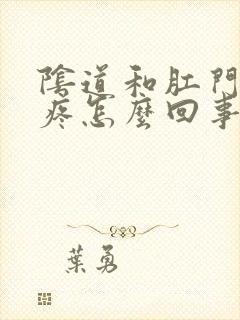 陰道和肛門
疼怎麼回事
葉勇